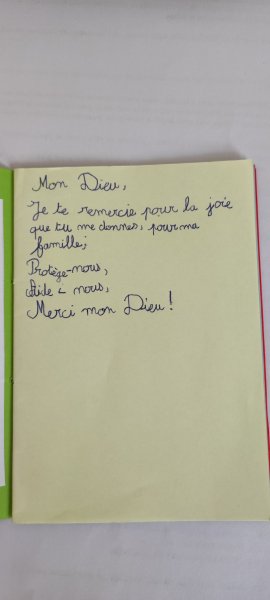 Mon Dieu,
Je te remercie pour la joie
que tu me donnes, pour ma
famille;
Protège-nous,
Aide - nous,
Merci mon Dieu !